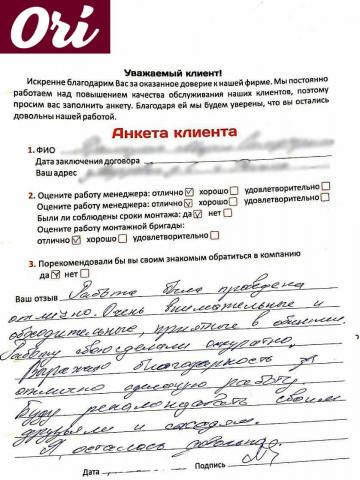 Ori
Уважаемый клиент!
Искренне благодарим Вас за оказанное доверие к нашей фирме. Мы постоянно
работаем над повышением качества обслуживания наших клиентов, поэтому
просим вас заполнить анкету. Благодаря ей мы будем уверены, что вы остались
довольны нашей работой.
Анкета клиента
1. ФИО
Дата заключения договора
Ваш адрес
2. Оцените работу менеджера: отлично хорошо удовлетворительно
Оцените работу менеджера: отлично хорошо удовлетворительно
Были ли соблюдены сроки монтажа: да нет
Оцените работу монтажной бригады:
отлично хорошо удовлетворительно
3. Порекомендовали бы вы своим знакомым обратиться в компанию
да нет
Ваш отзыв Работа была проведена
отлично. Очень внимательные и
обходительные, приятные в общении.
Работу свою сделали аккуратно.
Выражаю благодарность за
отлично сделаную работу.
Буду рекомендовать своим
друзьям и соседям.
Я осталась довольна.
Дата Подпись